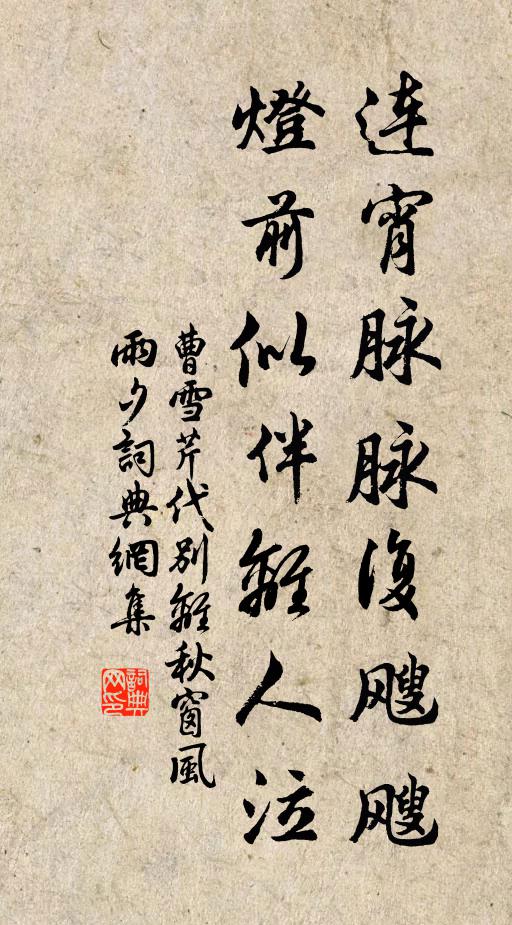 连宵脉脉復飕飕
燈前似伴離人泣
曹雪芹代别離秋窗風
雨夕詞典網集
詞典网印